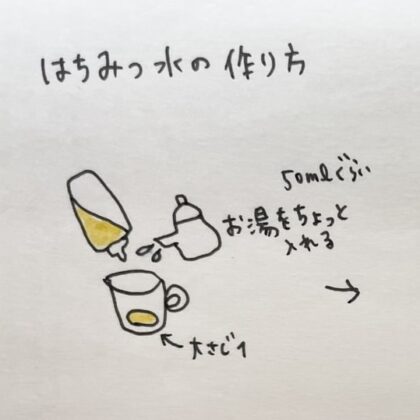 はちみつ水の作り方
50mlぐらい
お湯をちょっと
入れる
大さじ1